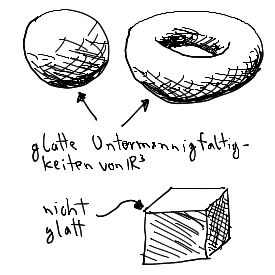 glatte Untermannigfaltig-
keiten von ℝ³
nicht
glatt